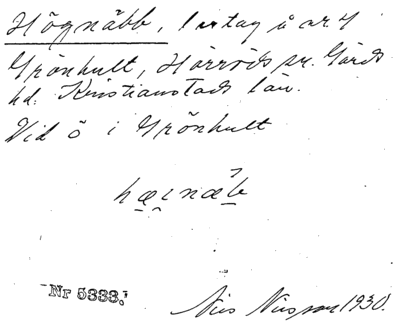 Högnäbb, lartag å nr 4
Grönhult, Hörröds sn. Gärds
hd. Kristianstads län.
Vid ö i Grönhult
hæi næb
Nr 5333.
Nils Nilsson 1930.